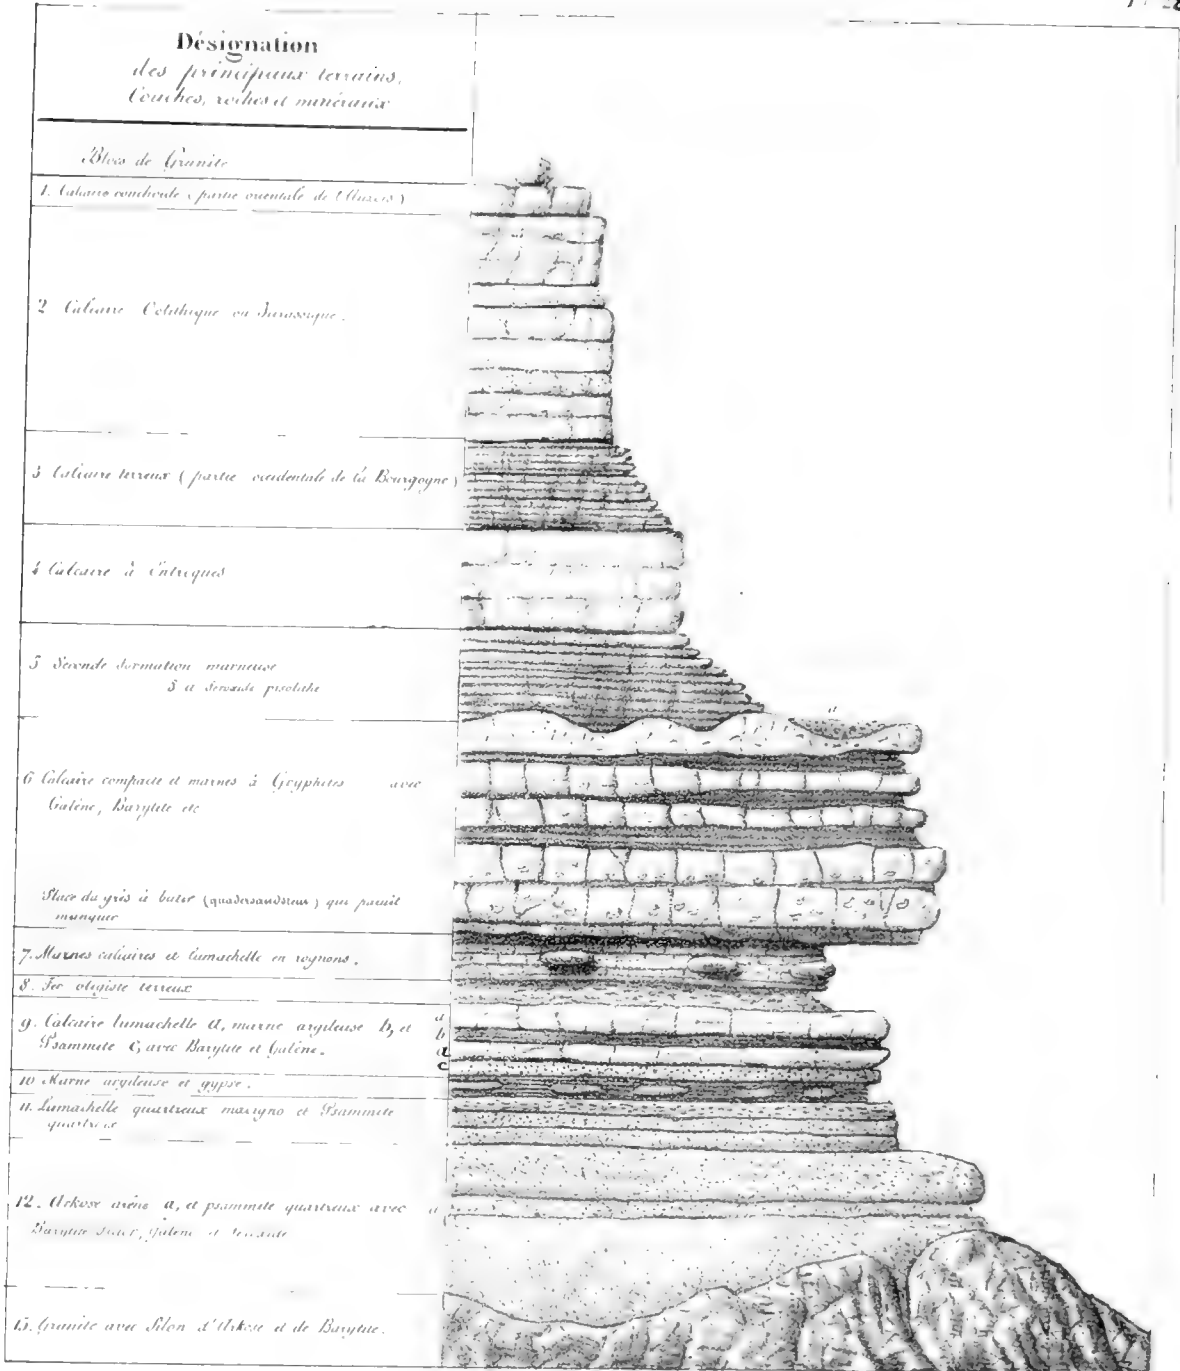 Désignation
des principaux terrains,
Couches, roches et minéraux
Blocs de Granite
1. Calcaire conchoide (partie orientale de l'Auxois)
2 Calcaire Oolithique ou Jurassique.
3 Calcaire terreux (partie occidentale de la Bourgogne)
4 Calcaire à Entroques
5 Seconde formation marneuse
5 et feroxide pisolithe
a
6 Calcaire compacte et marnes à Gryphetes avec
Galène, Barytite etc
Place du grès à batir (quadersandstein) qui parait
manquer
7. Marnes calcaires et lumachelle en rognons.
8. Fer oligiste terreux
9. Calcaire lumachelle a, marne argileuse b, et
Psammite c, avec Barytite et Galène.
a
b
a
c
10 Marne argileuse et gypse.
11. Lumachelle quartzeux et Psammite
quartzeux
12. Arkose arèno a, et psammite quartzeux avec
Barytite galène et
a
13. Granite avec Filon d'Arkose et de Barytite.